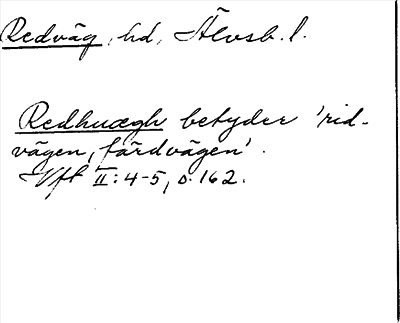 Redväg, hd, Älvsb. l.
Redhuægh betyder 'rid-
vägen, färdvägen'.
Vft II: 4-5, s. 162.